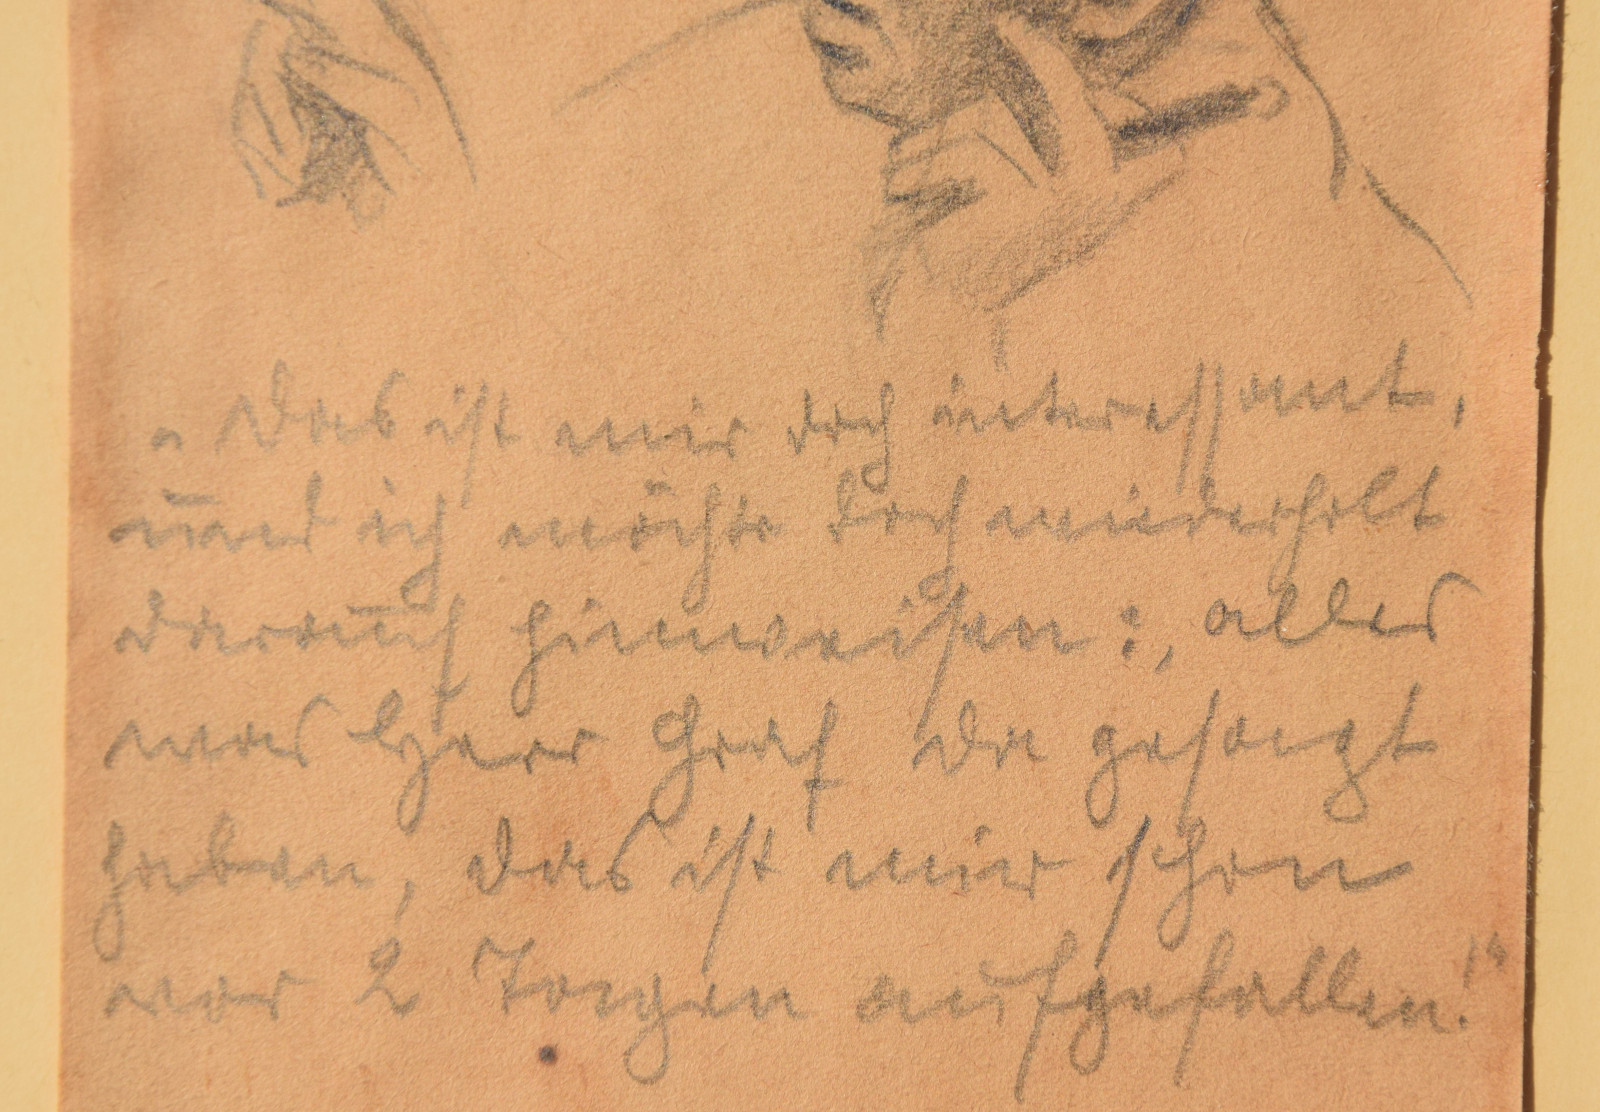 „Das ist mir doch interessant,
und ich möchte doch wiederholt
darauf hinweisen:, alles
was Herr Graf da gesagt
haben, das ist mir schon
vor 2 Tagen aufgefallen!"